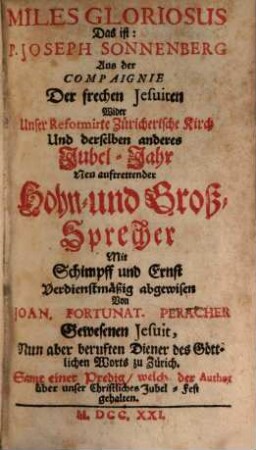 MILES GLORIOSUS
Das ist:
P. JOSEPH SONNENBERG
Aus der
COMPAIGNIE
Der frechen Jesuiten
Wider
Unser Reformirte Züricherische Kirch
Und derselben anderes
Jubel-Jahr
Neu auftrettender
Hohn- und Groß-
Sprecher
Mit
Schimpff und Ernst
Verdienstmäßig abgewisen
Von
JOAN. FORTUNAT. PERACHER
Gewesenen Jesuit,
Nun aber berufften Diener des Gött-
lichen Worts zu Zürich.
Samt einer Predig/ welch der Author
über unser Christliches Jubel-Fest
gehalten.
M. DCC. XXI.